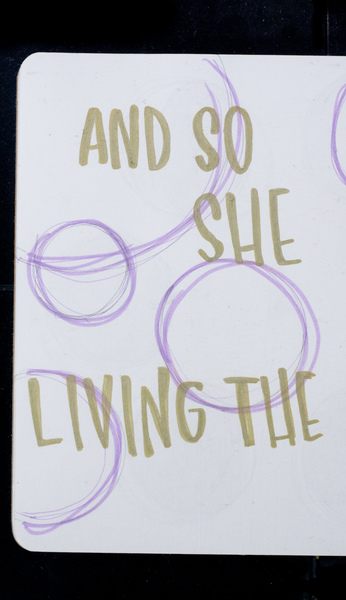 AND SO
SHE
LIVING THE